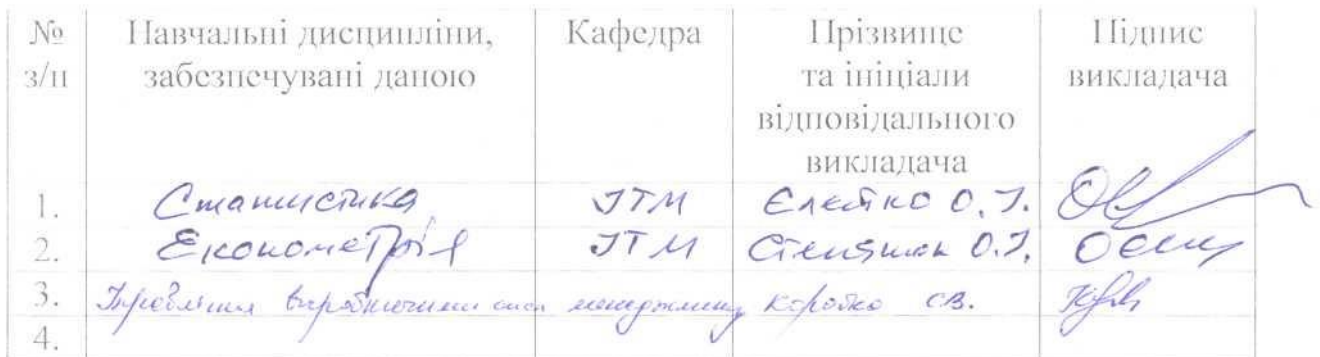 № з/п Навчальні дисципліни, забезпечувані даною Кафедра Прізвище та ініціали відповідального викладача Підпис викладача
1. Статистика ІТМ Єлейко О.І.
2. Економетрія ІТМ О.І.
3. Управління виробничими менеджменту С.В.
4.